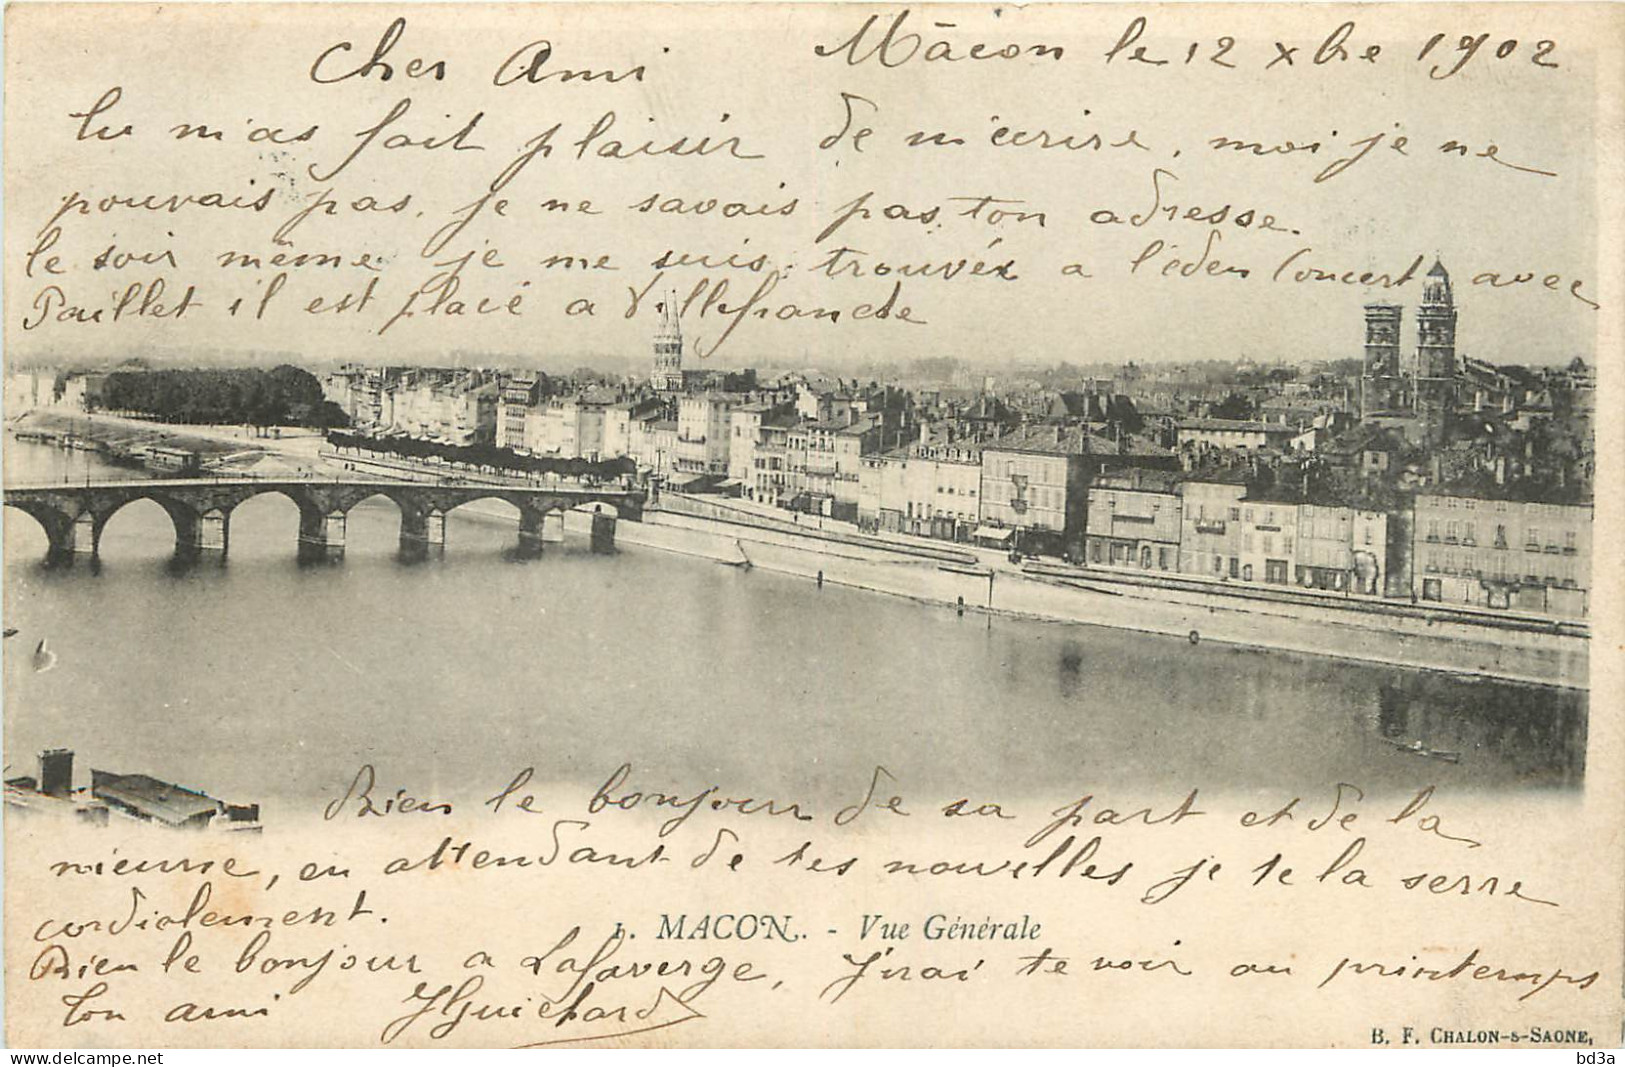 Mâcon le 12 xbre 1902
Cher Ami
tu m'as fait plaisir de m'ecrire, moi je ne
pouvais pas, je ne savais pas ton adresse.
le soir même je me suis trouvér a l'éden Concert avec
Paillet il est placé a Villefranche
Bien le bonjour de sa part et de la
mienne, en attendant de tes nouvelles je te la serre
cordialement.
1. MACON. - Vue Générale
Bien le bonjour a Lafaverge, J'irai te voir au printemps
ton ami JGuichard
B. F. CHALON-S-SAONE,
www.delcampe.net
bd3a